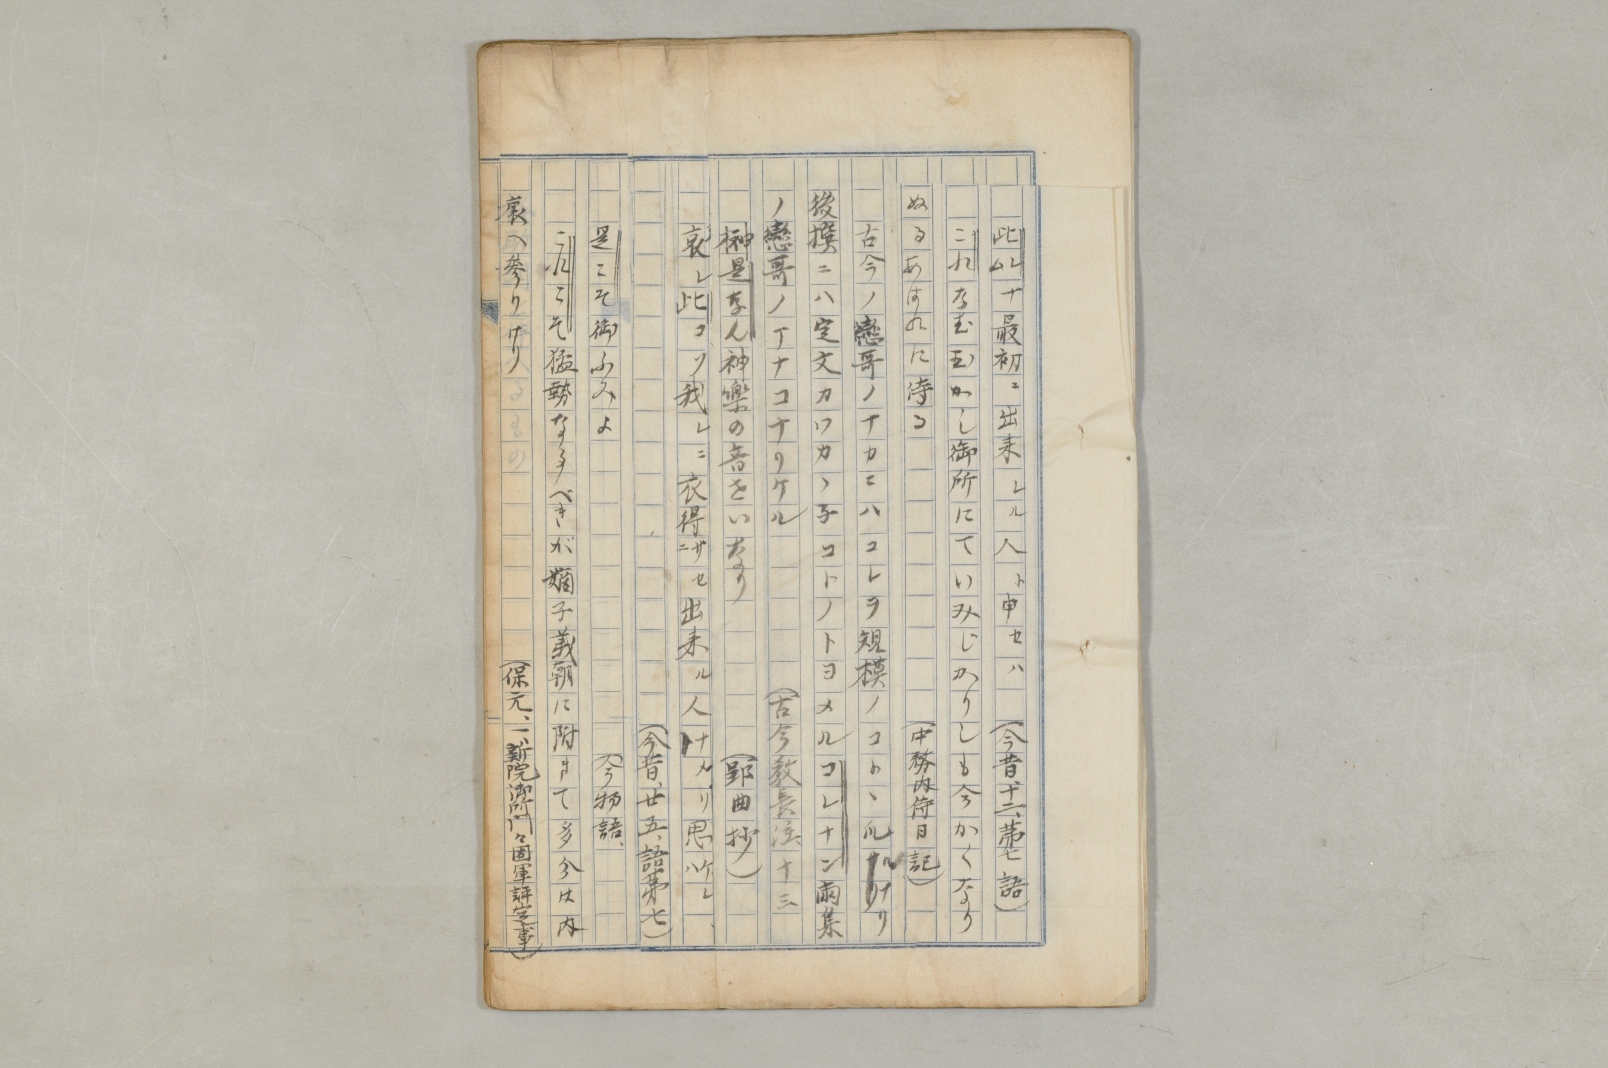 此レナ最初ニ出来レル人ト申セハ（今昔、十二、第七語）
これなむ玉かし御所にていみじかりしも今かくなり
ぬるあはれに侍る（中務内侍日記）
古今ノ戀哥ノナカニハコレヲ規模ノコトヽ
後撰ニハ定文カワカヽ子コトノトヨメルコレナン兩集
ノ戀哥ノ ナコナリケル（古今教長注十三
榊是なん神樂の音をいなり（郢曲抄）
哀レ此コソ我レニ衣得サセニ出来ル人ナメリ思ケレ
（今昔、廿五、語第七）
是こそ御ふみよ（今物語、
これこそ猛勢なるべきが嫡子義朝に附きて多分は内
裏へ參りけり（保元、一、新院御所門々固軍評定事）